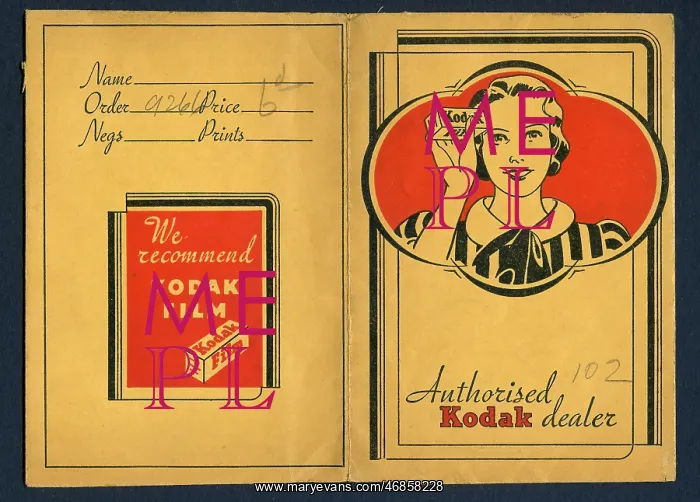 Name
Order 9266 Price 6d
Negs Prints
We
recommend
KODAK
FILM
Kodak
Film
Kodak
Film
Authorised 102
Kodak dealer
ME
PL
ME
PL
www.maryevans.com/46858228